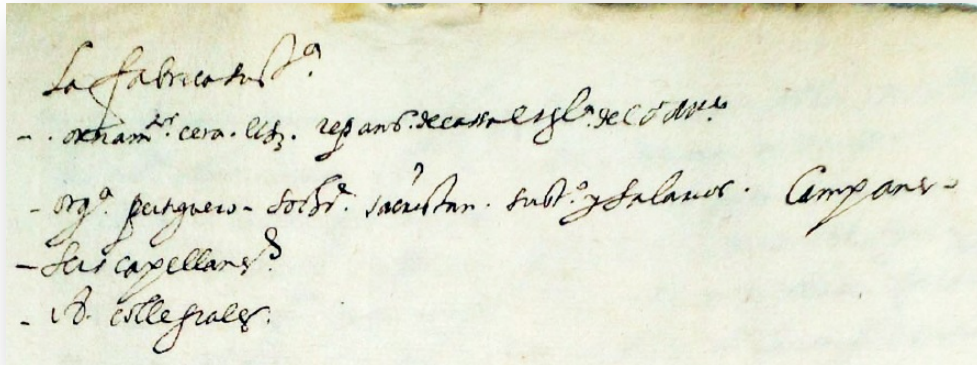 La fabrica sust.ª
- ornam.tos cera. reparos. de cassa e Igl.ª de
- org.ª pertiguero - sochr.e sacristan. sust.º y salarios. Campaner
- seis capellanes
- collegiales.